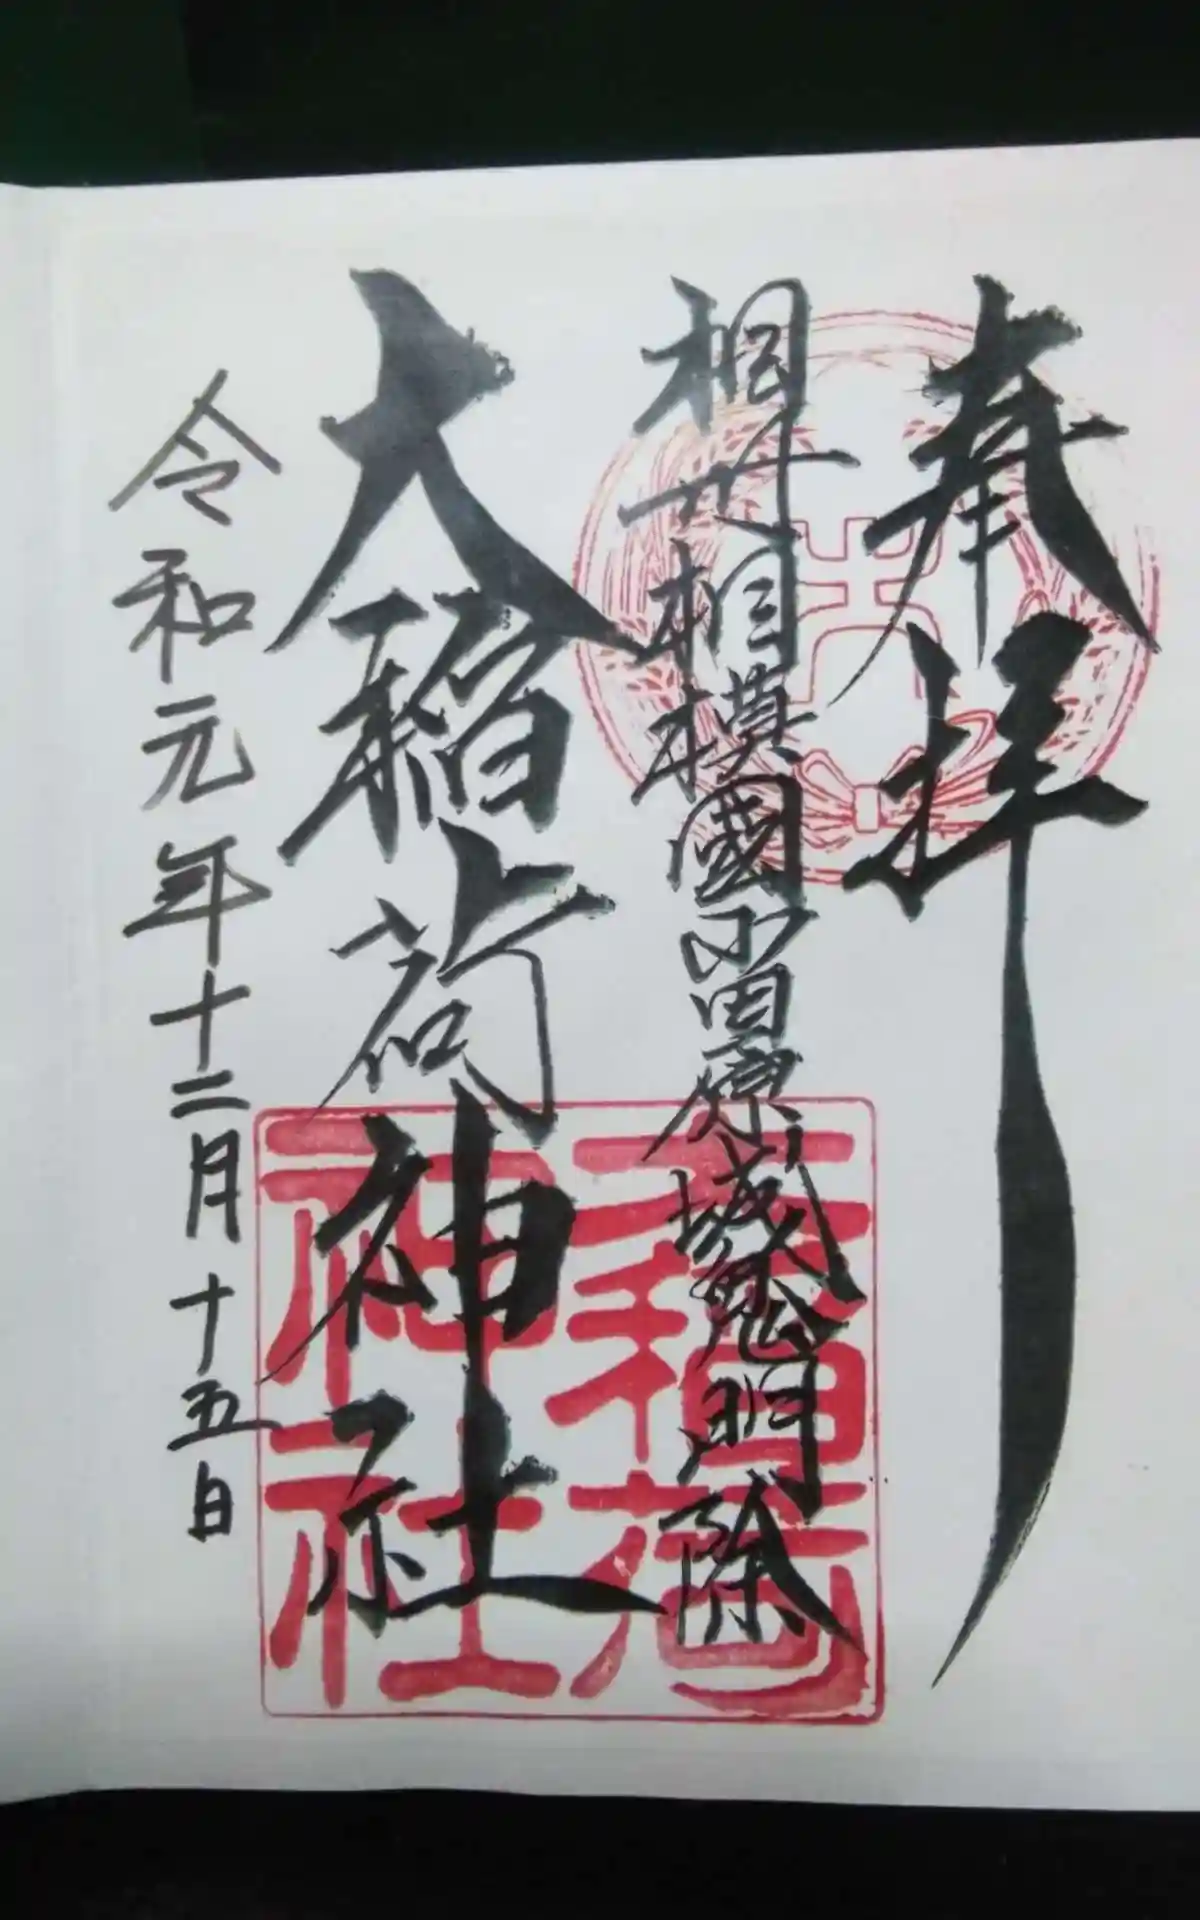 奉拝
相模國小田原城鬼門除
大稲荷神社
令和元年十二月十五日
大稲荷
神社